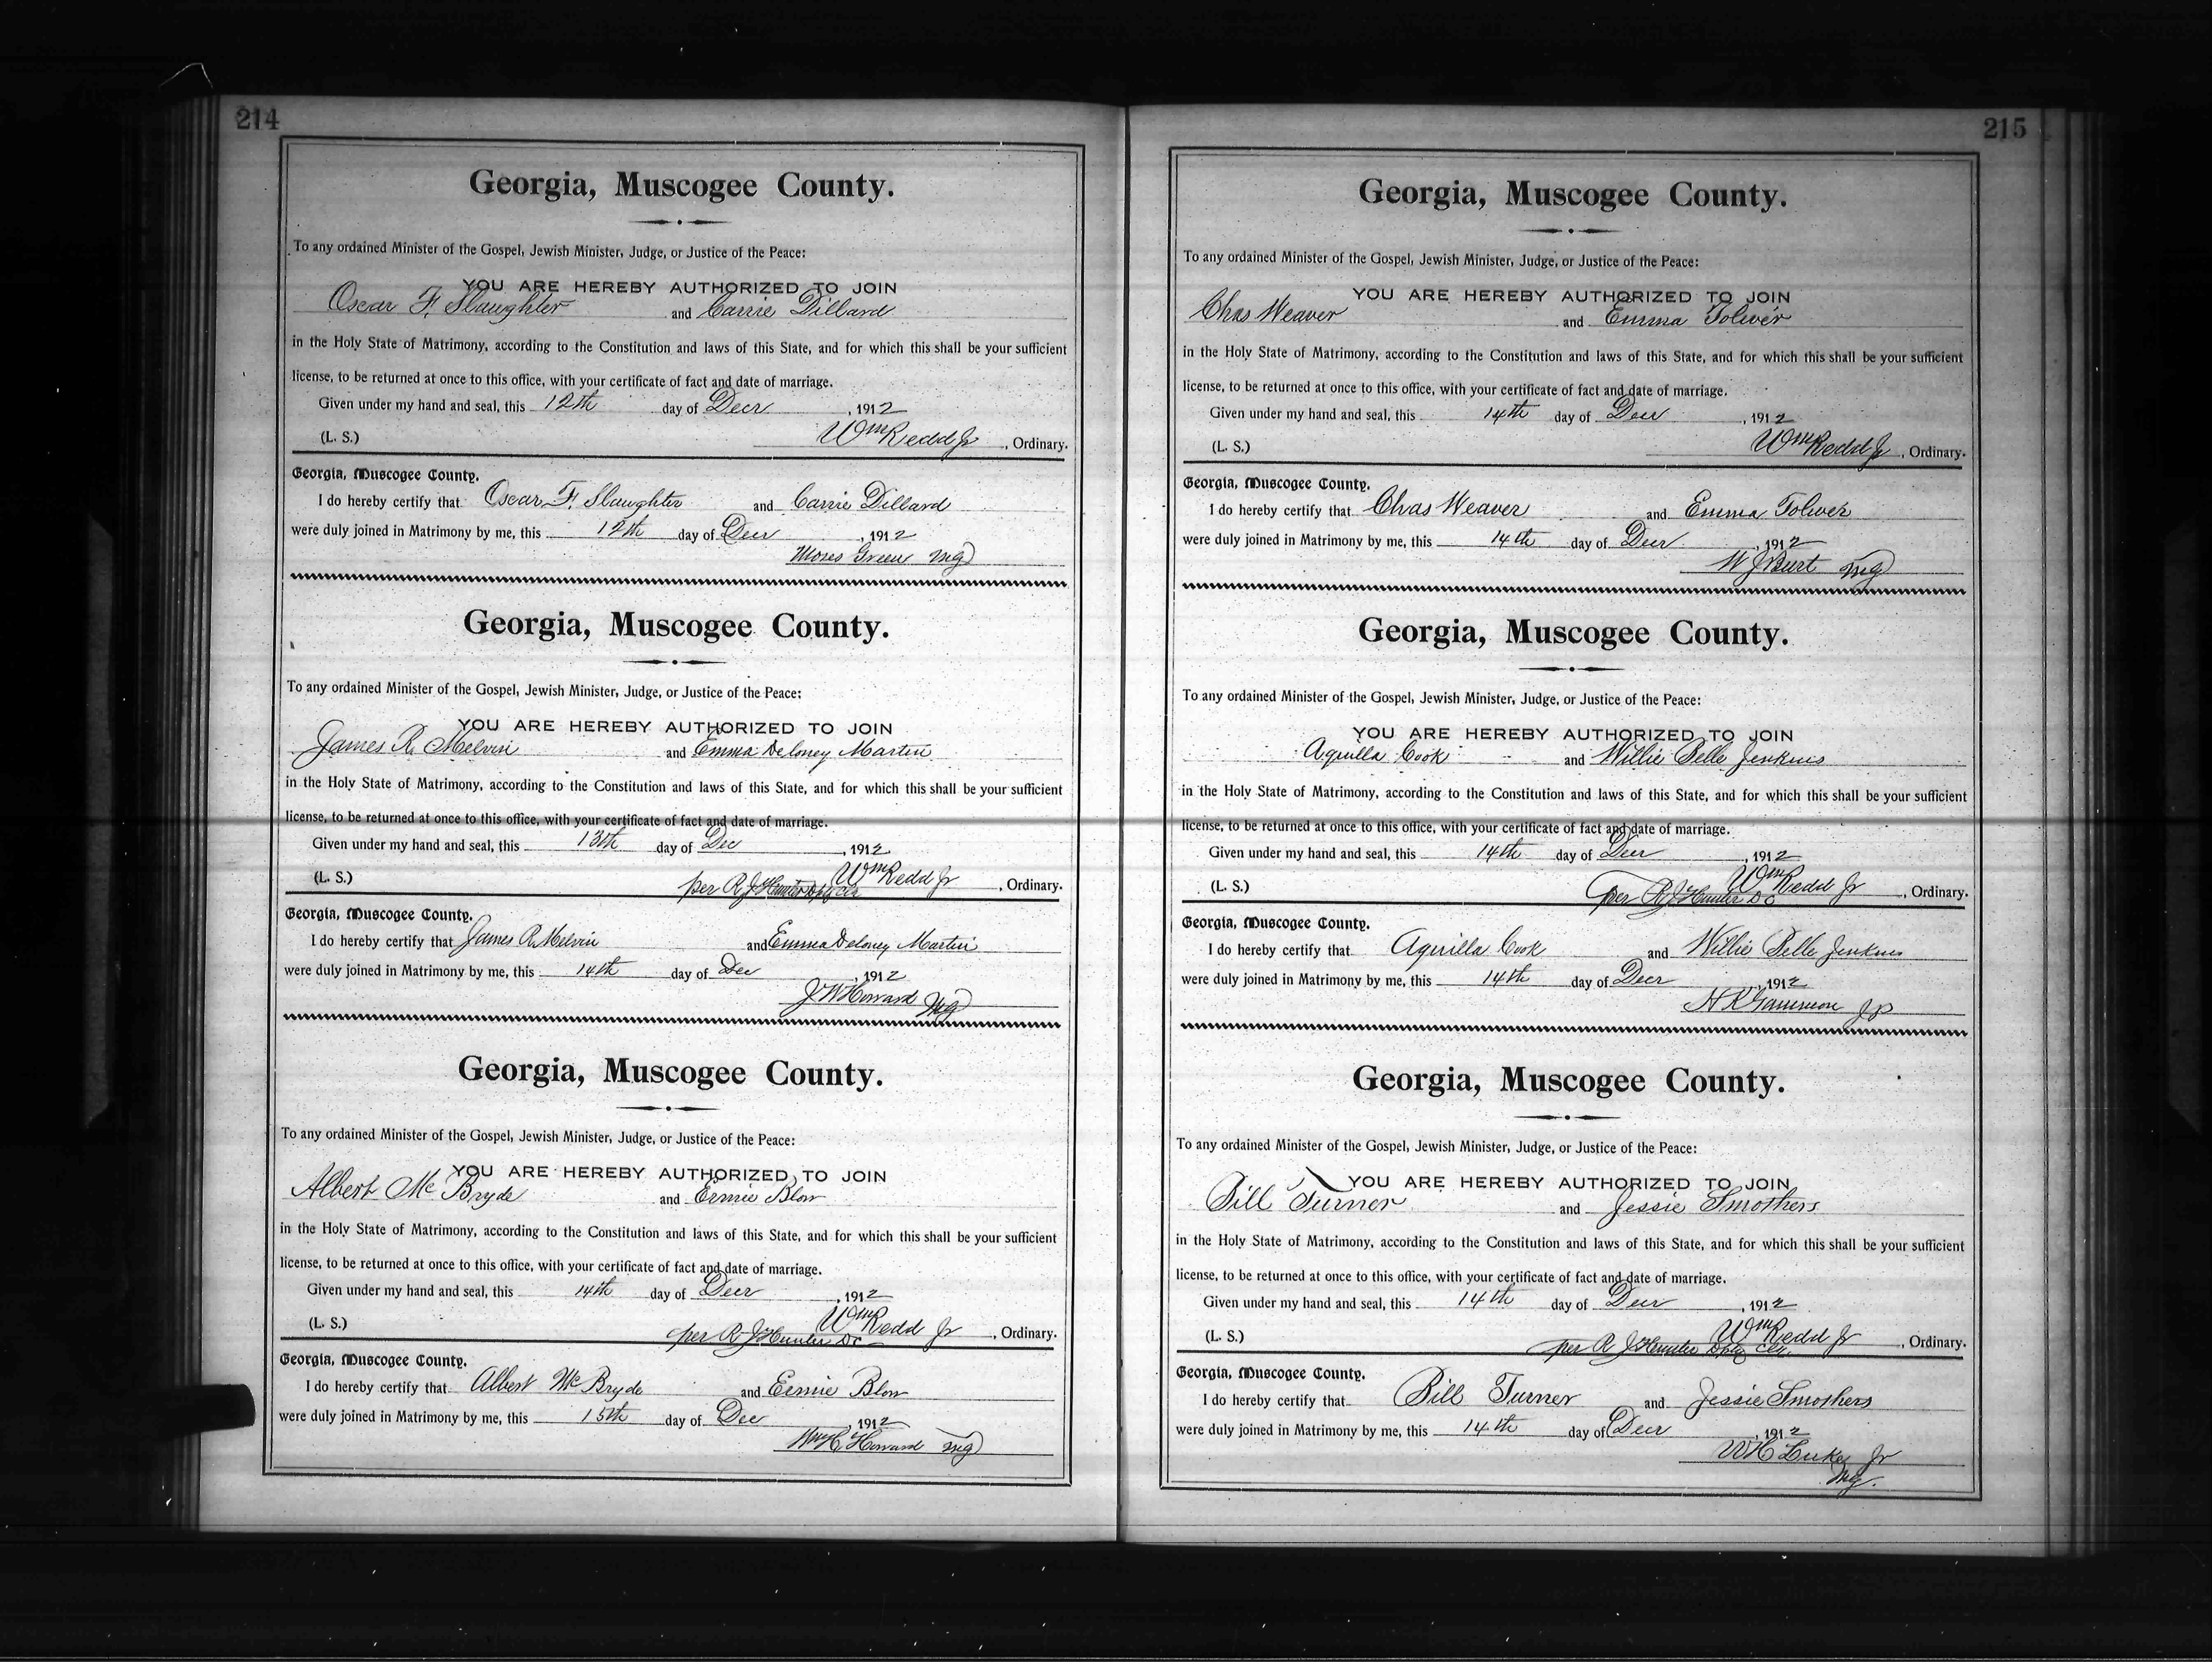 214
Georgia, Muscogee County.
To any ordained Minister of the Gospel, Jewish Minister, Judge, or Justice of the Peace:
YOU ARE HEREBY AUTHORIZED TO JOIN
Oscar F. Slaughter and Carrie Dillard
in the Holy State of Matrimony, according to the Constitution and laws of this State, and for which this shall be your sufficient
license, to be returned at once to this office, with your certificate of fact and date of marriage.
Given under my hand and seal, this 12th day of Decr, 1912
(L. S.) Wm Redd Jr, Ordinary.
Georgia, Muscogee County.
I do hereby certify that Oscar F. Slaughter and Carrie Dillard
were duly joined in Matrimony by me, this 12th day of Decr, 1912
Moses Green Mg
Georgia, Muscogee County.
To any ordained Minister of the Gospel, Jewish Minister, Judge, or Justice of the Peace:
YOU ARE HEREBY AUTHORIZED TO JOIN
James R. Melvin and Emma Deloney Martin
in the Holy State of Matrimony, according to the Constitution and laws of this State, and for which this shall be your sufficient
license, to be returned at once to this office, with your certificate of fact and date of marriage.
Given under my hand and seal, this 13th day of Dec, 1912
Wm Redd Jr
(L. S.) per R J Hunter Dpty Clk, Ordinary.
Georgia, Muscogee County.
I do hereby certify that James R. Melvin and Emma Deloney Martin
were duly joined in Matrimony by me, this 14th day of Dec, 1912
J W Howard Mg
Georgia, Muscogee County.
To any ordained Minister of the Gospel, Jewish Minister, Judge, or Justice of the Peace:
YOU ARE HEREBY AUTHORIZED TO JOIN
Albert Mc Bryde and Ermie Blow
in the Holy State of Matrimony, according to the Constitution and laws of this State, and for which this shall be your sufficient
license, to be returned at once to this office, with your certificate of fact and date of marriage.
Given under my hand and seal, this 14th day of Decr, 1912
Wm Redd Jr
(L. S.) per R J Hunter DC, Ordinary.
Georgia, Muscogee County.
I do hereby certify that Albert Mc Bryde and Ermie Blow
were duly joined in Matrimony by me, this 15th day of Dec, 1912
Wm H Howard Mg
215
Georgia, Muscogee County.
To any ordained Minister of the Gospel, Jewish Minister, Judge, or Justice of the Peace:
YOU ARE HEREBY AUTHORIZED TO JOIN
Chas Weaver and Emma Toliver
in the Holy State of Matrimony, according to the Constitution and laws of this State, and for which this shall be your sufficient
license, to be returned at once to this office, with your certificate of fact and date of marriage.
Given under my hand and seal, this 14th day of Decr, 1912
(L. S.) Wm Redd Jr, Ordinary.
Georgia, Muscogee County.
I do hereby certify that Chas Weaver and Emma Toliver
were duly joined in Matrimony by me, this 14th day of Decr, 1912
W J Burt Mg
Georgia, Muscogee County.
To any ordained Minister of the Gospel, Jewish Minister, Judge, or Justice of the Peace:
YOU ARE HEREBY AUTHORIZED TO JOIN
Aquilla Cook and Willie Belle Jenkins
in the Holy State of Matrimony, according to the Constitution and laws of this State, and for which this shall be your sufficient
license, to be returned at once to this office, with your certificate of fact and date of marriage.
Given under my hand and seal, this 14th day of Decr, 1912
Wm Redd Jr
(L. S.) per R J Hunter DC, Ordinary.
Georgia, Muscogee County.
I do hereby certify that Aquilla Cook and Willie Belle Jenkins
were duly joined in Matrimony by me, this 14th day of Decr, 1912
H R Gammon Jp
Georgia, Muscogee County.
To any ordained Minister of the Gospel, Jewish Minister, Judge, or Justice of the Peace:
YOU ARE HEREBY AUTHORIZED TO JOIN
Bill Turner and Jessie Smothers
in the Holy State of Matrimony, according to the Constitution and laws of this State, and for which this shall be your sufficient
license, to be returned at once to this office, with your certificate of fact and date of marriage.
Given under my hand and seal, this 14th day of Decr, 1912
Wm Redd Jr
(L. S.) per R J Hunter Dpty Clk, Ordinary.
Georgia, Muscogee County.
I do hereby certify that Bill Turner and Jessie Smothers
were duly joined in Matrimony by me, this 14th day of Decr, 1912
W H Luke Jr
Mg.